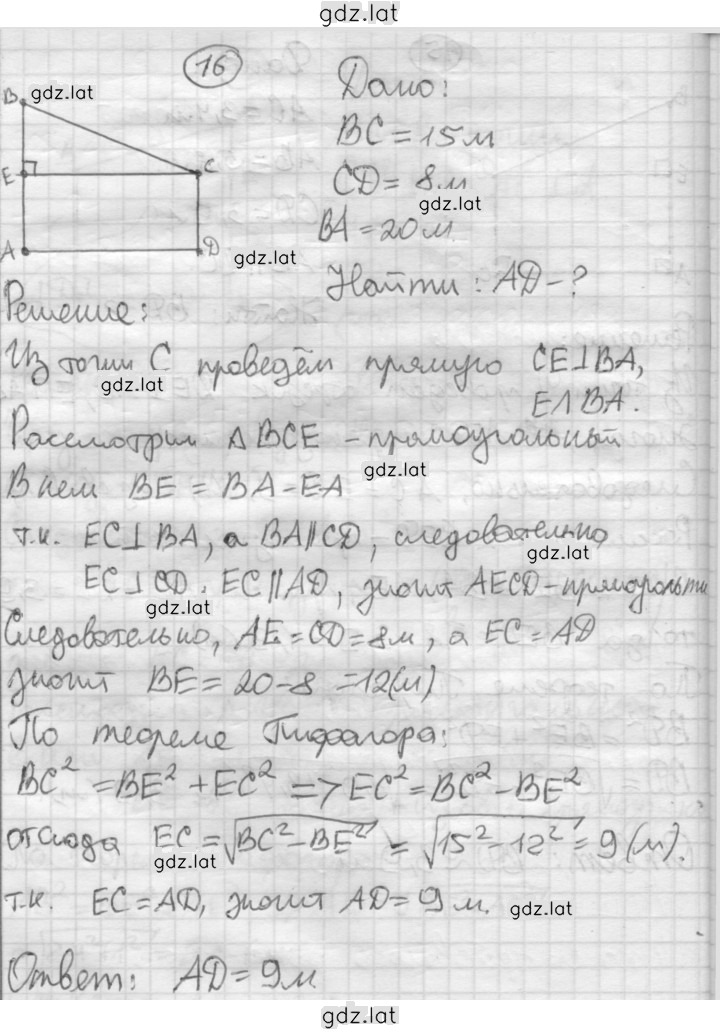 gdz.lat
16
Дано:
B gdz.lat
BC = 15 м
E C
CD = 8 м
gdz.lat
BA = 20 м
A D gdz.lat
Найти: AD - ?
Решение:
Из точки C проведём прямую CE⊥BA,
gdz.lat
E∧BA.
Рассмотрим ΔBCE - прямоугольный
gdz.lat
В нем BE = BA - EA
т.к. EC⊥BA, а BA∥CD, следовательно
gdz.lat
EC⊥CD. EC∥AD, значит AECD-
gdz.lat
Следовательно, AE = CD = 8м, а EC = AD
значит BE = 20 - 8 = 12(м)
По теореме Пифагора:
BC² = BE² + EC² => EC² = BC² - BE²
отсюда EC = √BC² - BE² = √15² - 12² = 9 (м).
gdz.lat
т.к. EC = AD, значит AD = 9 м. gdz.lat
Ответ: AD = 9м
gdz.lat